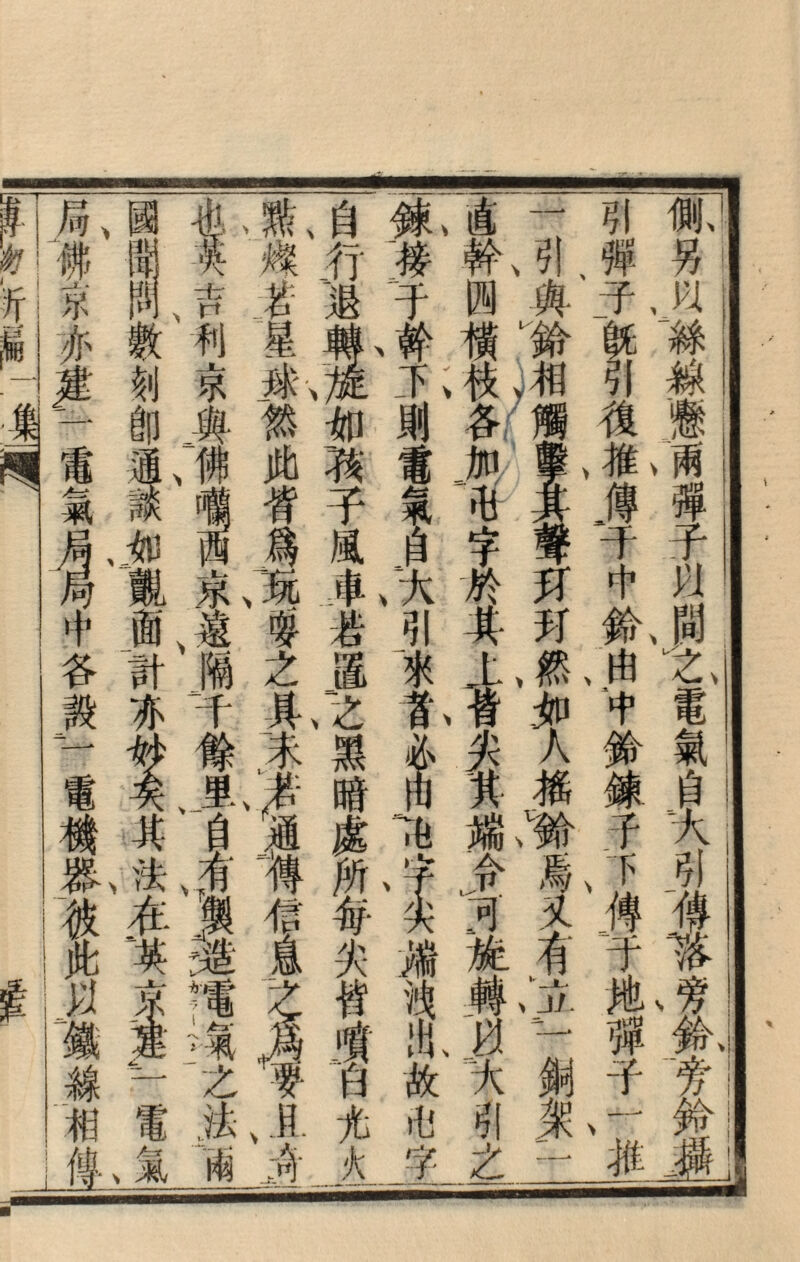 側、另以絲線懸兩彈子以間之、電氣自大引傳落旁鈴、旁鈴攝
引彈子、旣引復推、傳于中鈴、由中鈴鍊子下傳于地、彈子一推
一引、與鈴相觸擊、其聲玎玎然、如人搖鈴焉、又有立一銅架、一
直幹、四橫枝、各加卍字於其上、皆尖其端、令可旋轉、以大引之
鍊、接于幹下、則電氣自大引來者、必由卍字尖端洩出、故卍字
自行退轉、旋如孩子風車、若置之黑暗處所、每尖皆噴白光火
點、燦若星球、然此皆爲玩耍之具、未若通傳信息之爲要且奇
也、英吉利京與佛囒西京、遠隔千餘里、自有製造電氣之法、兩
國聞問、數刻卽通、談如覿面、計亦妙矣、其法、在英京建一電氣
局、佛京亦建一電氣局、局中各設一電機器、彼此以鐵線相傳、
博物新編一集